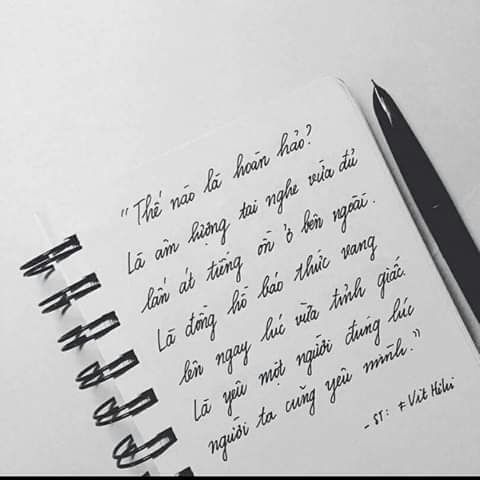 "Thế nào là hoàn hảo?
Là âm lượng tai nghe vừa đủ
lấn át tiếng ồn ở bên ngoài.
Là đồng hồ báo thức vang
lên ngay lúc vừa tỉnh giấc.
Là yêu một người đúng lúc
người ta cũng yêu mình."
- ST: # Vit Hihi